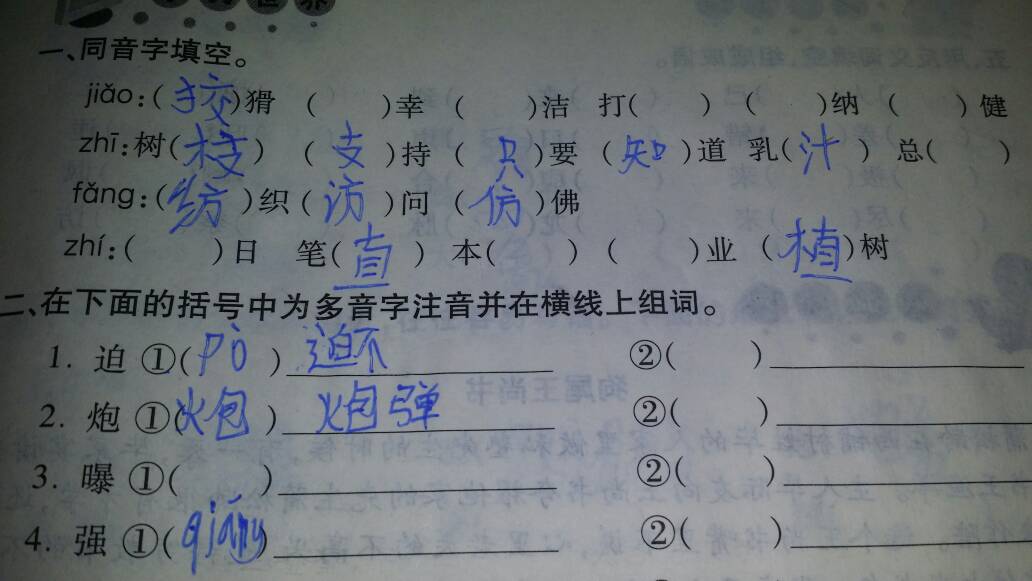 世界
一、同音字填空。
jiǎo:(狡)猾 ( )幸 ( )洁 打( ) ( )纳 ( )健
zhī:树(枝) (支)持 (只)要 (知)道 乳(汁) 总( )
fǎng:(纺)织 (访)问 (仿)佛
zhí:( )日 笔(直) 本( ) ( )业 (植)树
二、在下面的括号中为多音字注音并在横线上组词。
1. 迫 ①(pò) 迫不 ②( )
2. 炮 ①(炮) 炮弹 ②( )
3. 曝 ①( ) ②( )
4. 强 ①(qiáng) ②( )